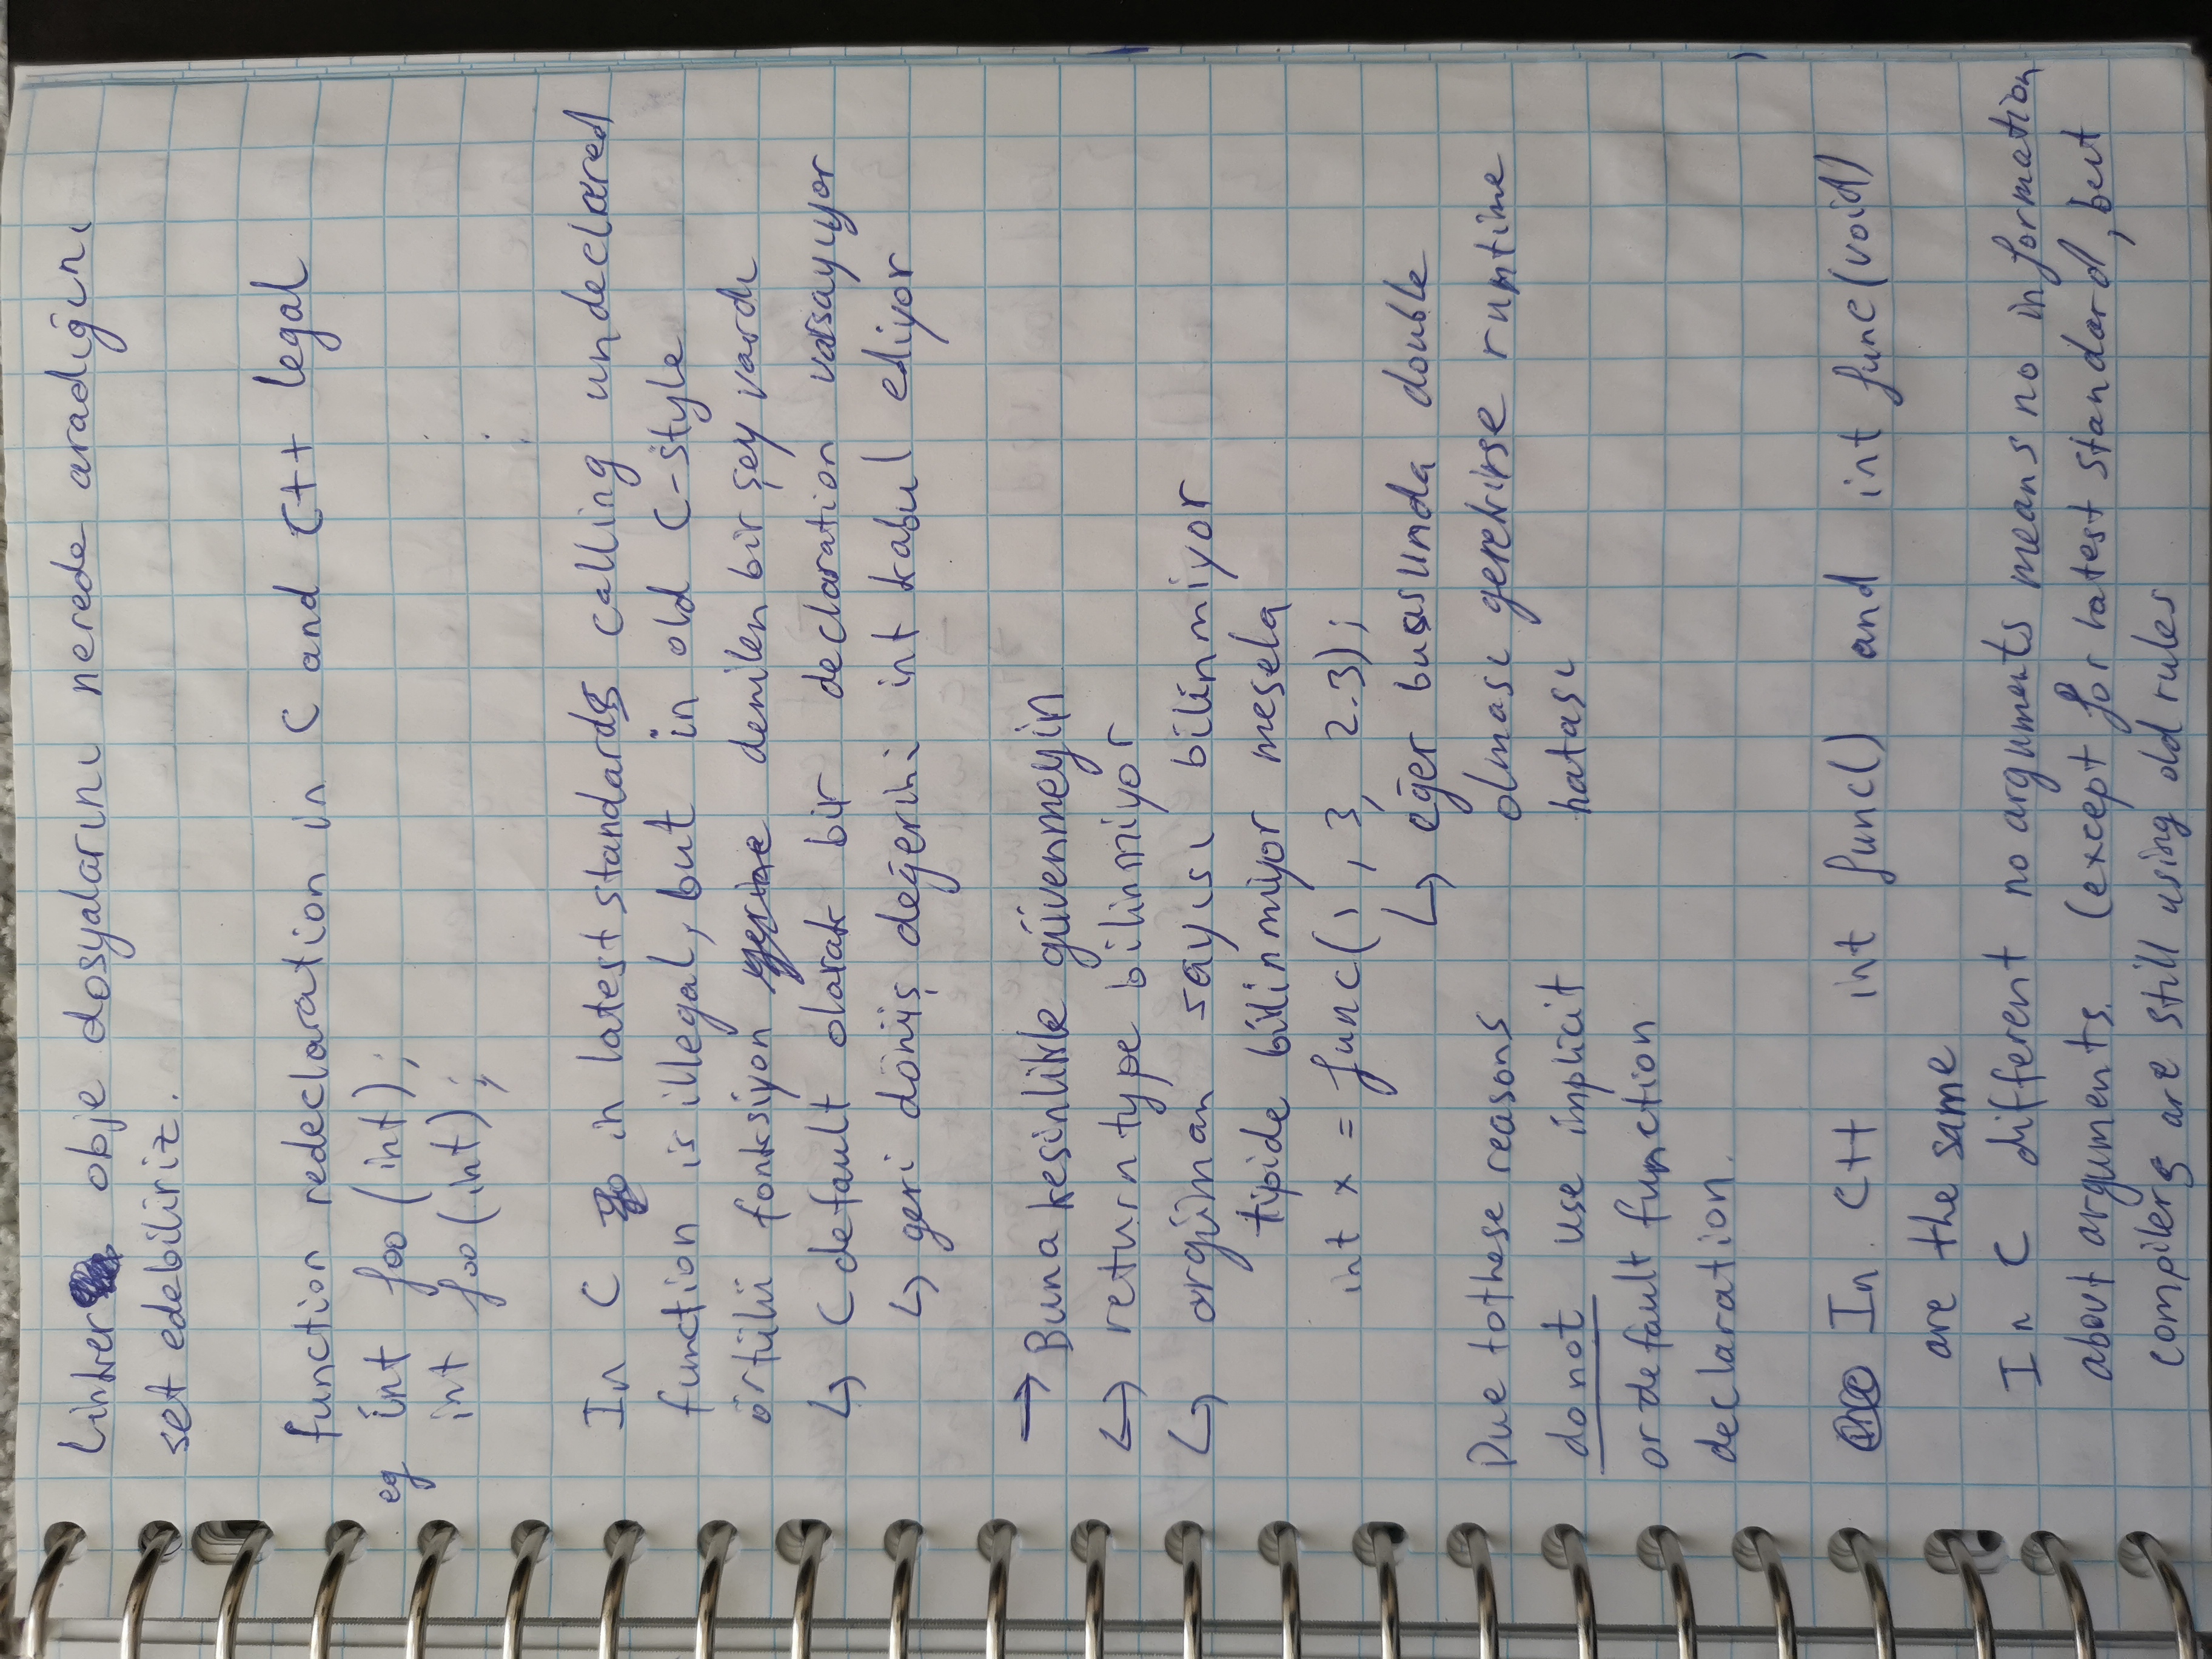 Linker obje dosyalarını nerede aradığını
set edebiliriz.
function redeclaration in C and C++ legal
eg int foo (int);
int foo (int);
In C in latest standards calling undeclared
function is illegal, but in old C-style
örtülü fonksiyon denilen bir şey vardı
↳ C default olarak bir declaration varsayıyor
↳ geri dönüş değerini int kabul ediyor
→ Buna kesinlikle güvenmeyin
↳ return type bilinmiyor
↳ argüman sayısı bilinmiyor
tipide bilinmiyor mesela
int x = func(1, 3, 2.3);
↳ eğer double
olması gerekirse runtime
hatası
Due to these reasons
do not use implicit
or default function
declaration.
In C++ int func() and int func(void)
are the same
In C different no arguments means no information
about arguments. (except for latest standard, but
compilers are still using old rules